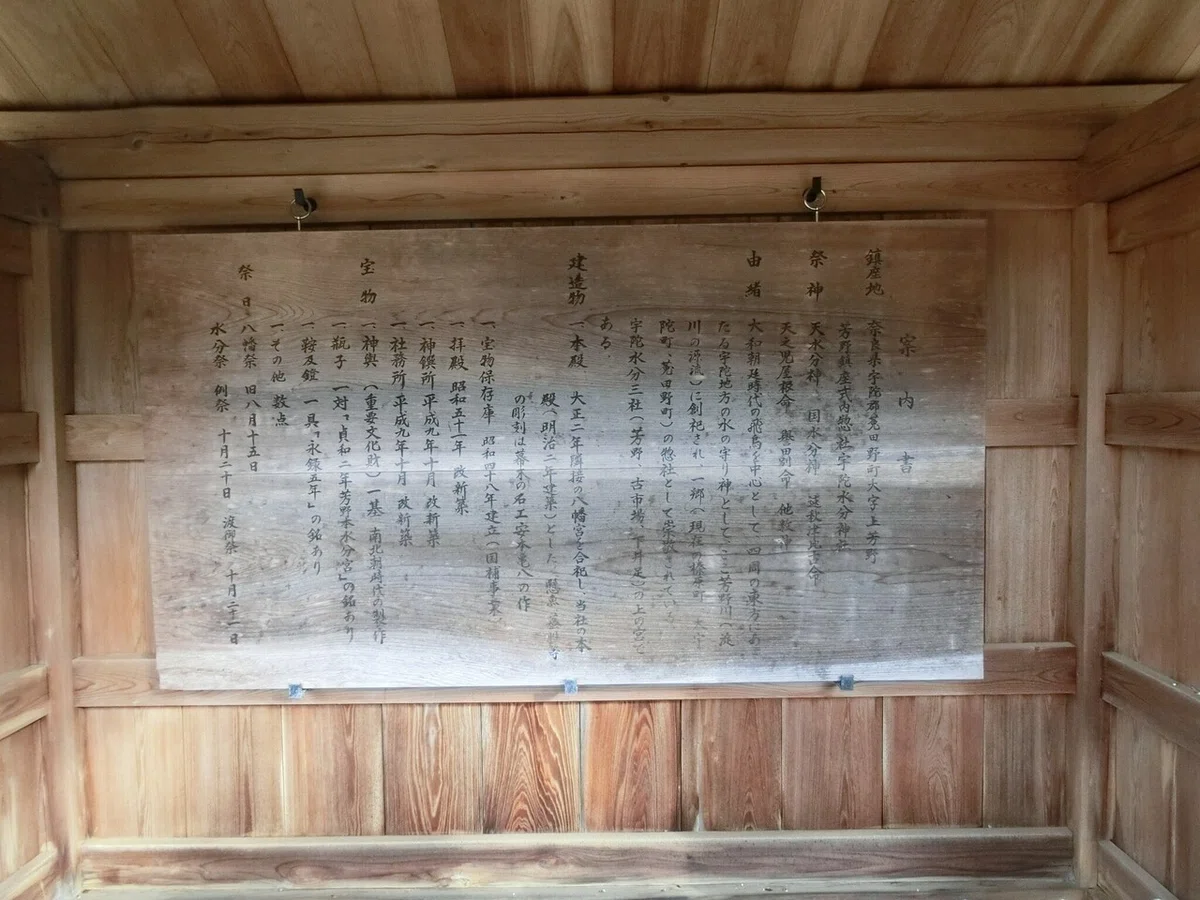 案内書
鎮座地 奈良県宇陀郡菟田野町大字上芳野
芳野鎮座式内惣社宇陀水分神社
祭神 天水分神 国水分神 速秋津比古命
天之児屋根命 誉田別命 他数神
由緒 大和朝廷時代の飛鳥を中心として、四周の東方にあ
たる宇陀地方の水の守り神として、ここ芳野川(淀
川の源流)に創祀され、一郷(現在の榛原町、大宇
陀町、菟田野町)の惣社として崇敬されている
宇陀水分三社(芳野、古市場、下井足)の上の宮で
ある。
建造物 一、本殿 大正二年隣接の八幡宮を合祀し、当社の本
殿(明治二年建築)とした。
の彫刻は幕末の石工安本亀八の作
一、宝物保存庫 昭和四十八年建立(国補事業)
一、拝殿 昭和五十一年 改新築
一、神饌所 平成九年十月 改新築
一、社務所 平成九年十月 改新築
宝物 一、神輿 (重要文化財)一基 南北朝時代の製作
一、瓶子 一対「貞和二年芳野本水分宮」の銘あり
一、鞍及鐙 一具「永録五年」の銘あり
一、その他 数点
祭日 八幡祭 旧八月十五日
水分祭 例祭 十月二十日 渡御祭 十月二十一日